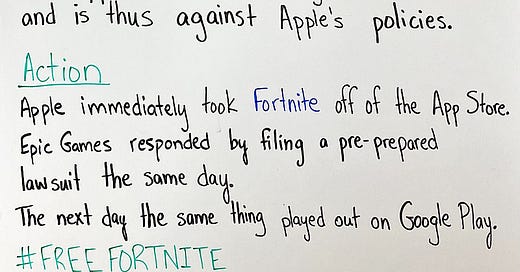 and is thus against Apple's policies.
Action
Apple immediately took Fortnite off of the App Store.
Epic Games responded by filing a pre-prepared
lawsuit the same day.
The next day the same thing played out on Google Play.
#FREEFORTNITE